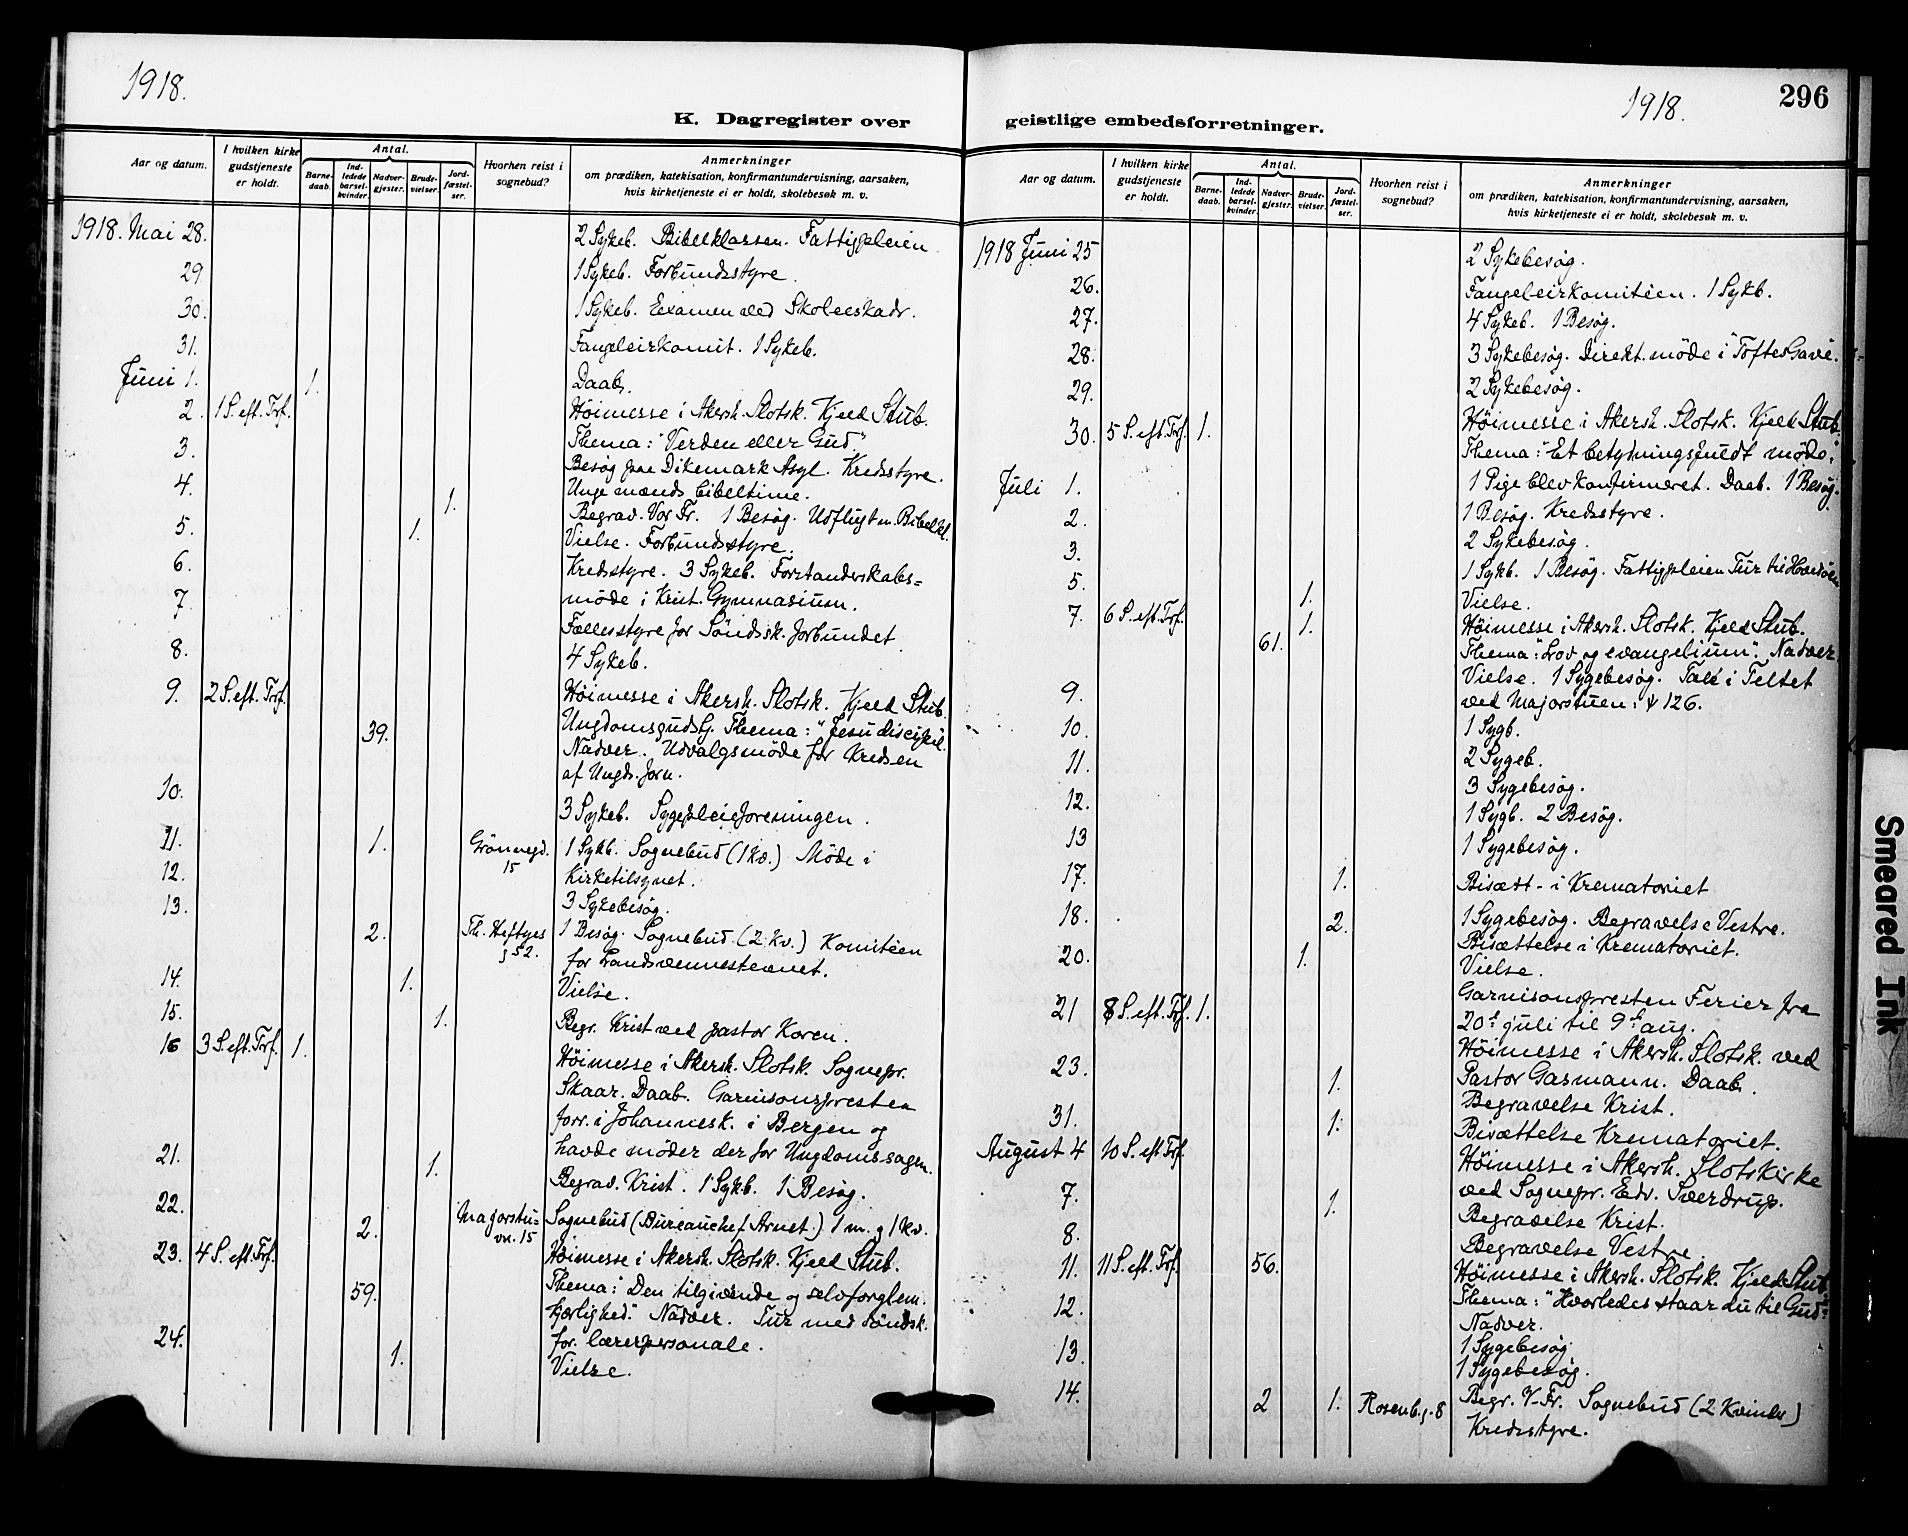 1918.
K. Dagregister over
Aar og datum.
I hvilken kirke gudstjeneste er holdt.
Antal.
Barnedaab.
Indledede barselkvinder.
Nadvergjester.
Brudevielser.
Jordfæstelser.
Hvorhen reist i sognebud?
Anmerkninger
om prædiken, katekisation, konfirmantundervisning, aarsaken,
hvis kirketjeneste ei er holdt, skolebesøk m. v.
1918. Mai 28. 2 Sykeb. Bibelklassen. Fattigpleien.
29 1 Sykeb. Forbundsstyre.
30. 1 Sykeb. Examen ved Skoleeskadr.
31. Fangeleirkomit. 1 Sykeb.
Juni 1. 1. Daab.
2. 1 S. eft. Trf. Höimesse i Akersh. Slotsk. Kjeld Stub.
Thema: "Verden eller Gud"
3. Besög paa Dikemark Asyl. Kredsstyre.
4. Unge mænds bibeltime.
1. Begrav. Vor Fr. 1 Besög. Udflugt m. Bibelkl.
5. 1. Vielse. Forbundsstyre.
6. Kredsstyre. 3 Sykeb. Forstanderskabs=
möde i Krist. Gymnasium.
7. Fællesstyre for Söndsk. forbundet
8. 4 Sykeb.
9. 2 S. eft. Trf. Höimesse i Akersh. Slotsk. Kjeld Stub.
39. Ungdomsgudstj. Thema: "Jesu discipel.
Nadver. Udvalgsmöde for Kredsen
af Ungds. forn.
10. 3 Sykeb. Sygepleieforeningen.
11. 1. Grönnegd. 15 1 Sykb. Sognebud (1 kv.) Möde i
12. Kirketilsynet.
13. 3 Sykebesög.
2. Th. Heftyes g 52. 1 Besög. Sognebud (2 kv.) Komitéen
for Landsvennestevnet.
14. 1. Vielse.
15. 1. Begr. Krist ved pastor Koren.
16 3 S. eft. Trf. 1. Höimesse i Akersh. Slotsk. Sognepr.
Skaar. Daab. Garnisonspresten
forr. i Johannesk. i Bergen og
havde möder der for Ungdomssagen.
21. 1. Begrav. Krist. 1 Sykb. 1 Besög.
22. 2. Majorstu=vn. 15 Sognebud (Bureauchef Arnet.) 1 m. g 1 kv.
23. 4 S. eft. Trf. Höimesse i Akersh. Slotsk. Kjeld Stub.
59. Thema: "Den tilgivende og selvforglem.
kjærlighed." Nadver. Tur med söndsk.
for. lærerpersonale.
24. 1. Vielse.
1918.
296
geistlige embedsforretninger.
Aar og datum.
I hvilken kirke gudstjeneste er holdt.
Antal.
Barnedaab.
Indledede barselkvinder.
Nadvergjester.
Brudevielser.
Jordfæstelser.
Hvorhen reist i sognebud?
Anmerkninger
om prædiken, katekisation, konfirmantundervisning, aarsaken,
hvis kirketjeneste ei er holdt, skolebesøk m. v.
1918 Juni 25 2 Sykebesög.
26. Fangeleirkomitéen. 1 Sykb.
27. 4 Sykeb. 1 Besög.
28. 3 Sykebesög. Direkt. möde i "Toftes Gave.
29. 2 Sykebesög.
30. 5 S. eft. Trf. 1. Höimesse i Akersh. Slotsk. Kjeld Stub.
Thema: "Et betydningsfuldt möde."
1 Pige blev konfirmeret. Daab. 1 Besög.
Juli 1. 1 Besög. Kredsstyre.
2. 2 Sykebesög.
3. 1 Sykb. 1 Besög. Fattigpleien Tur til
5. 1. Vielse.
7. 6 S. eft. Trf. 1. Höimesse i Akersh. Slotsk. Kjeld Stub.
61. Thema: "Lov og evangelium". Nadver.
Vielse. 1 Sygebesög. Tale i Teltet
ved Majorstuen: 126.
9. 1 Sygb.
10. 2 Sygeb.
11. 3 Sygebesög.
12. 1 Sygb. 2 Besög.
13 1 Sygebesög.
17. 1. Bisætt- i Krematoriet
18. 2. 1 Sygebesög. Begravelse Vestre.
Bisættelse i Krematoriet.
20. 1. Vielse.
Garnisonspresten Ferier fra
20d juli til 9d aug.
21 8 S. eft. Trf. 1. Höimesse i Akersh. Slotsk. ved
Pastor Gasmann. Daab.
23. 1. Begravelse Krist.
31. 1. Bisættelse Krematoriet.
August 4 10 S. eft Trf. Höimesse i Akersh. Slotskirke
ved Sognepr. Edv. Sverdrup.
7. 1. Begravelse Krist.
8. Begravelse Vestre.
11. 11 S. eft. Trf. 56. Höimesse i Akersh. Slotsk. Kjeld Stub.
Thema: "Hvorledes staar du til Gud?"
Nadver.
12. 1 Sygebesög
13. 1 Sygebesög.
14. 2 1. Rosenb.g. 8 Begr. V. Fr. Sognebud (2 Kvinder)
Kredsstyre.
Smeared Ink